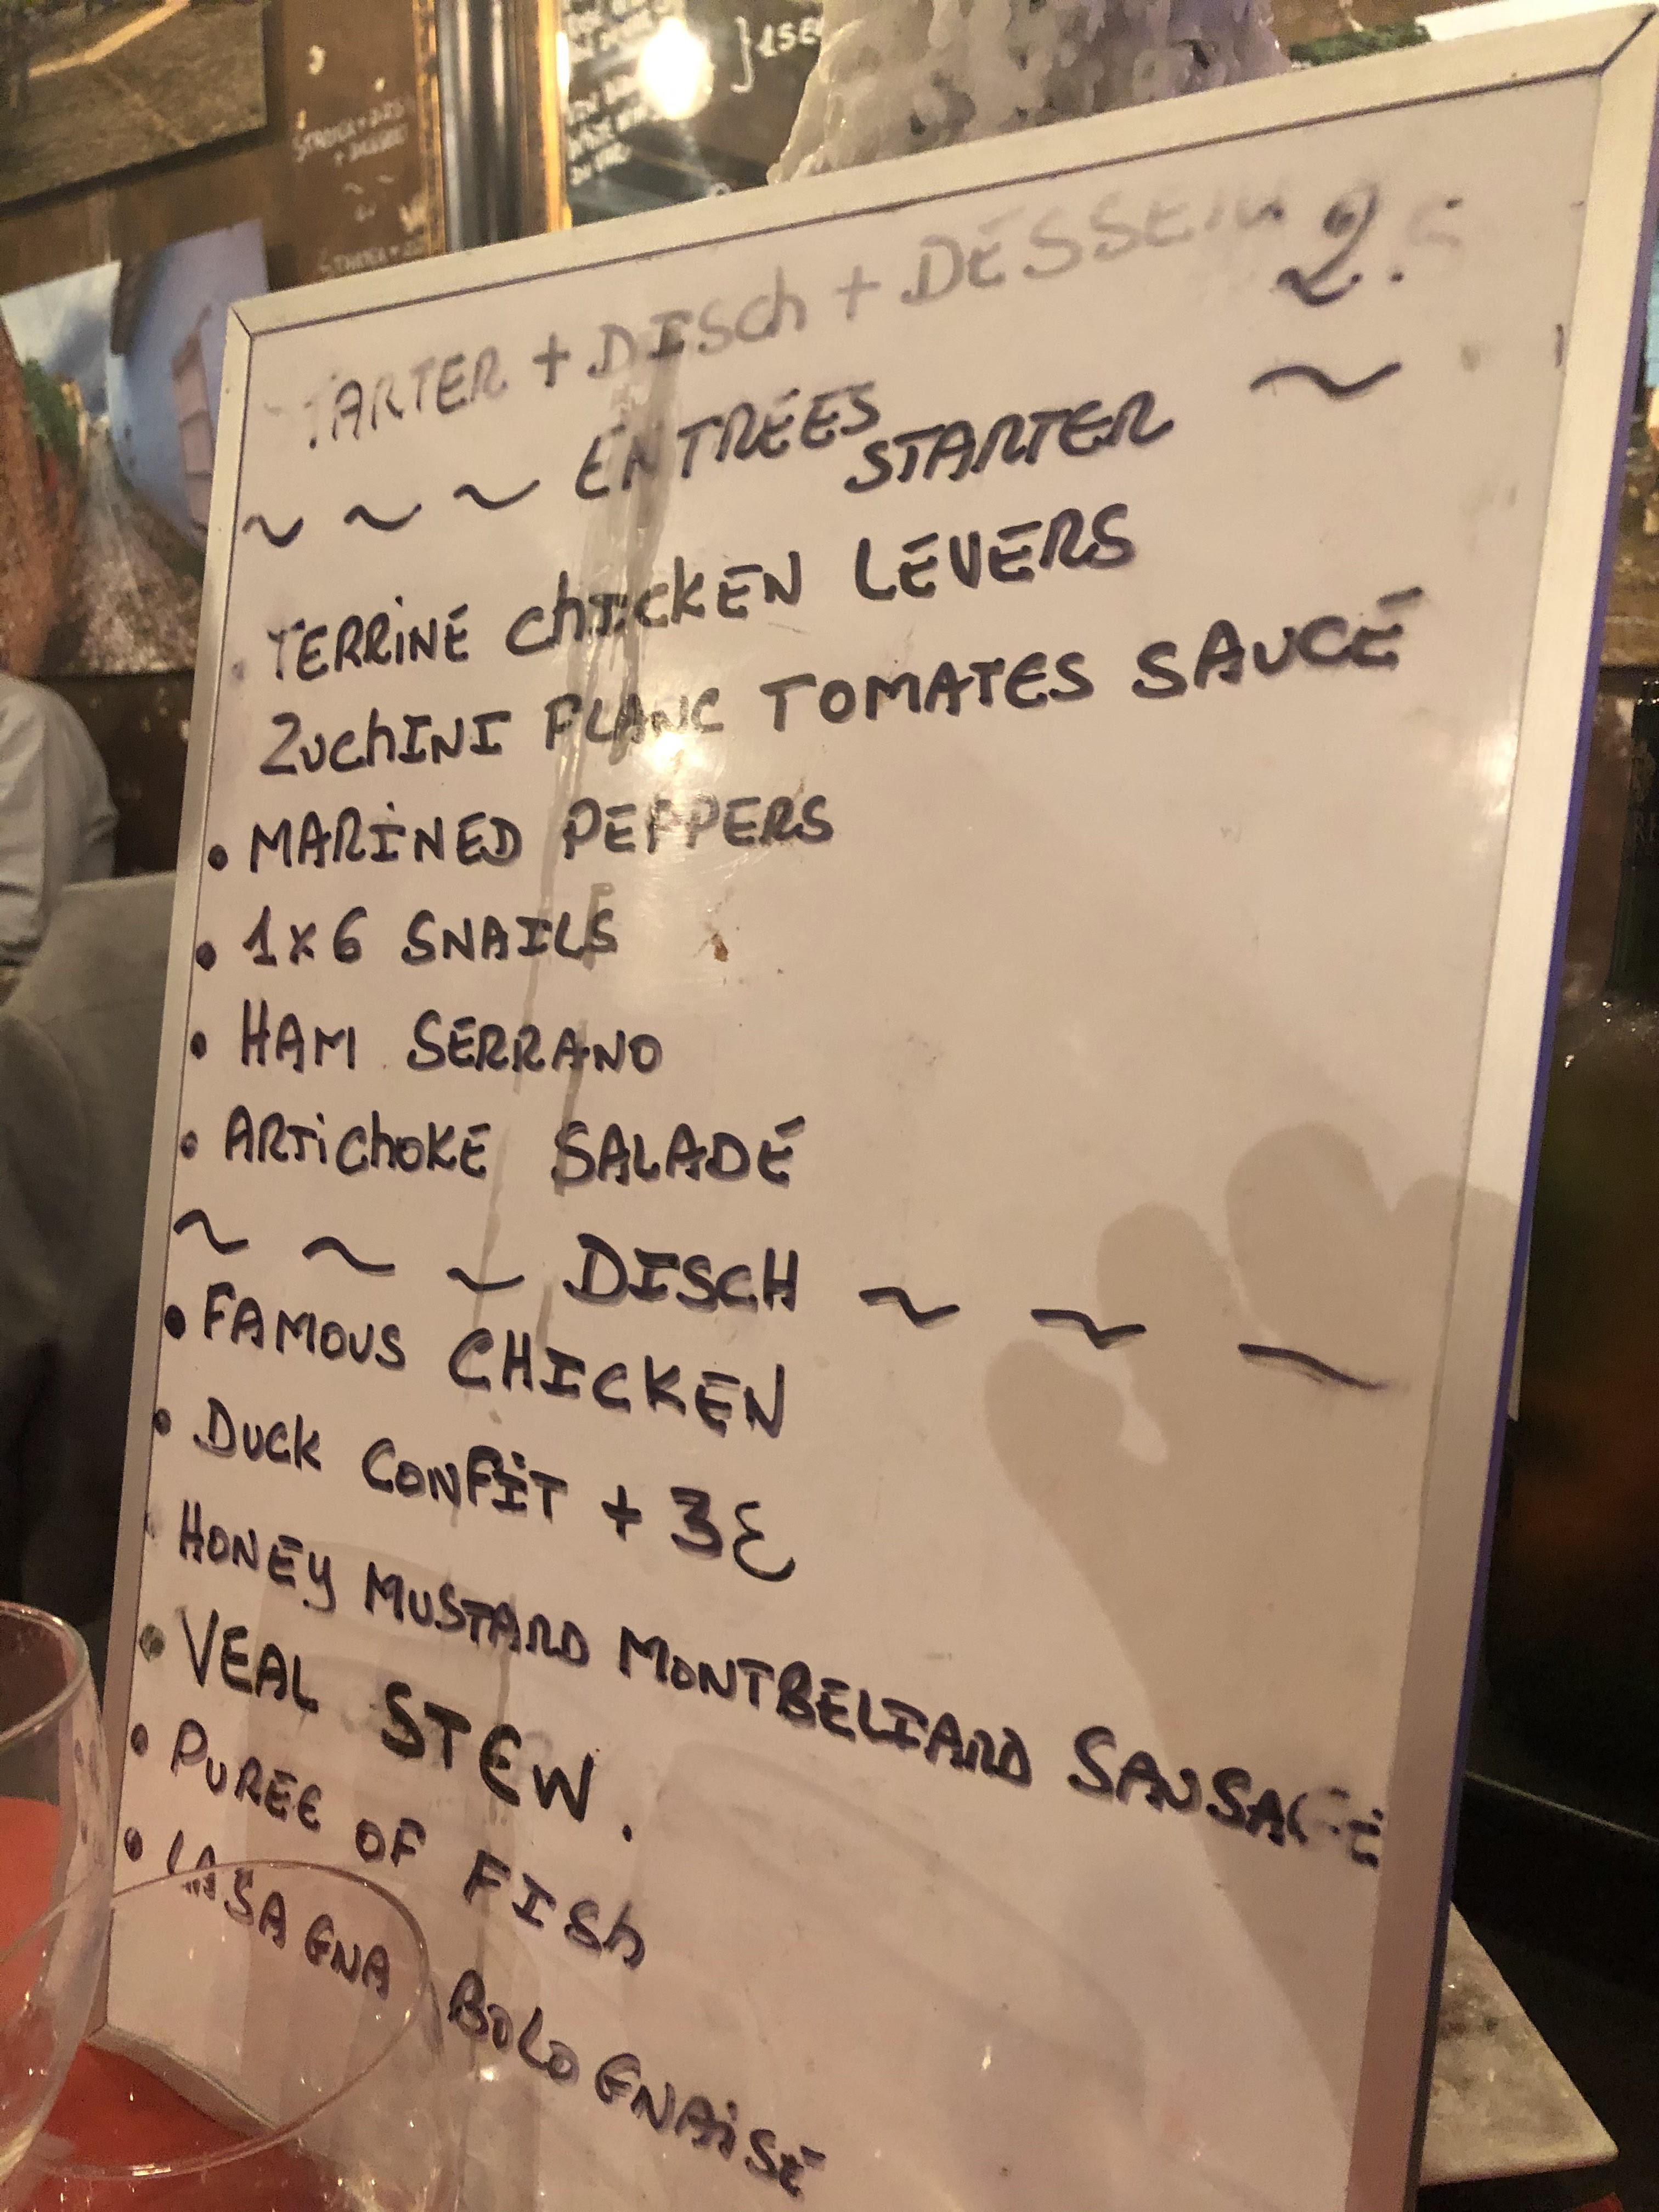 TARTER + DISCh + DESSE
~ ~ ~ ENTREES ~
STARTER
TERRINE ChICKEN LEVERS
ZuchINI FLANC TOMATES SAUCE
• MARINED PEPPERS
• 1x6 SNAILS
• HAM SERRANO
• ARTichoKE SALADE
~ ~ ~ DISCH ~ ~ ~
• FAMOUS CHICKEN
• DUCK CONFIT + 3€
HONEY MUSTARD MONTBELIARD SAUSAGE
• VEAL STEW.
• PUREE OF FISh
• LASAGNA BOLOGNAISE